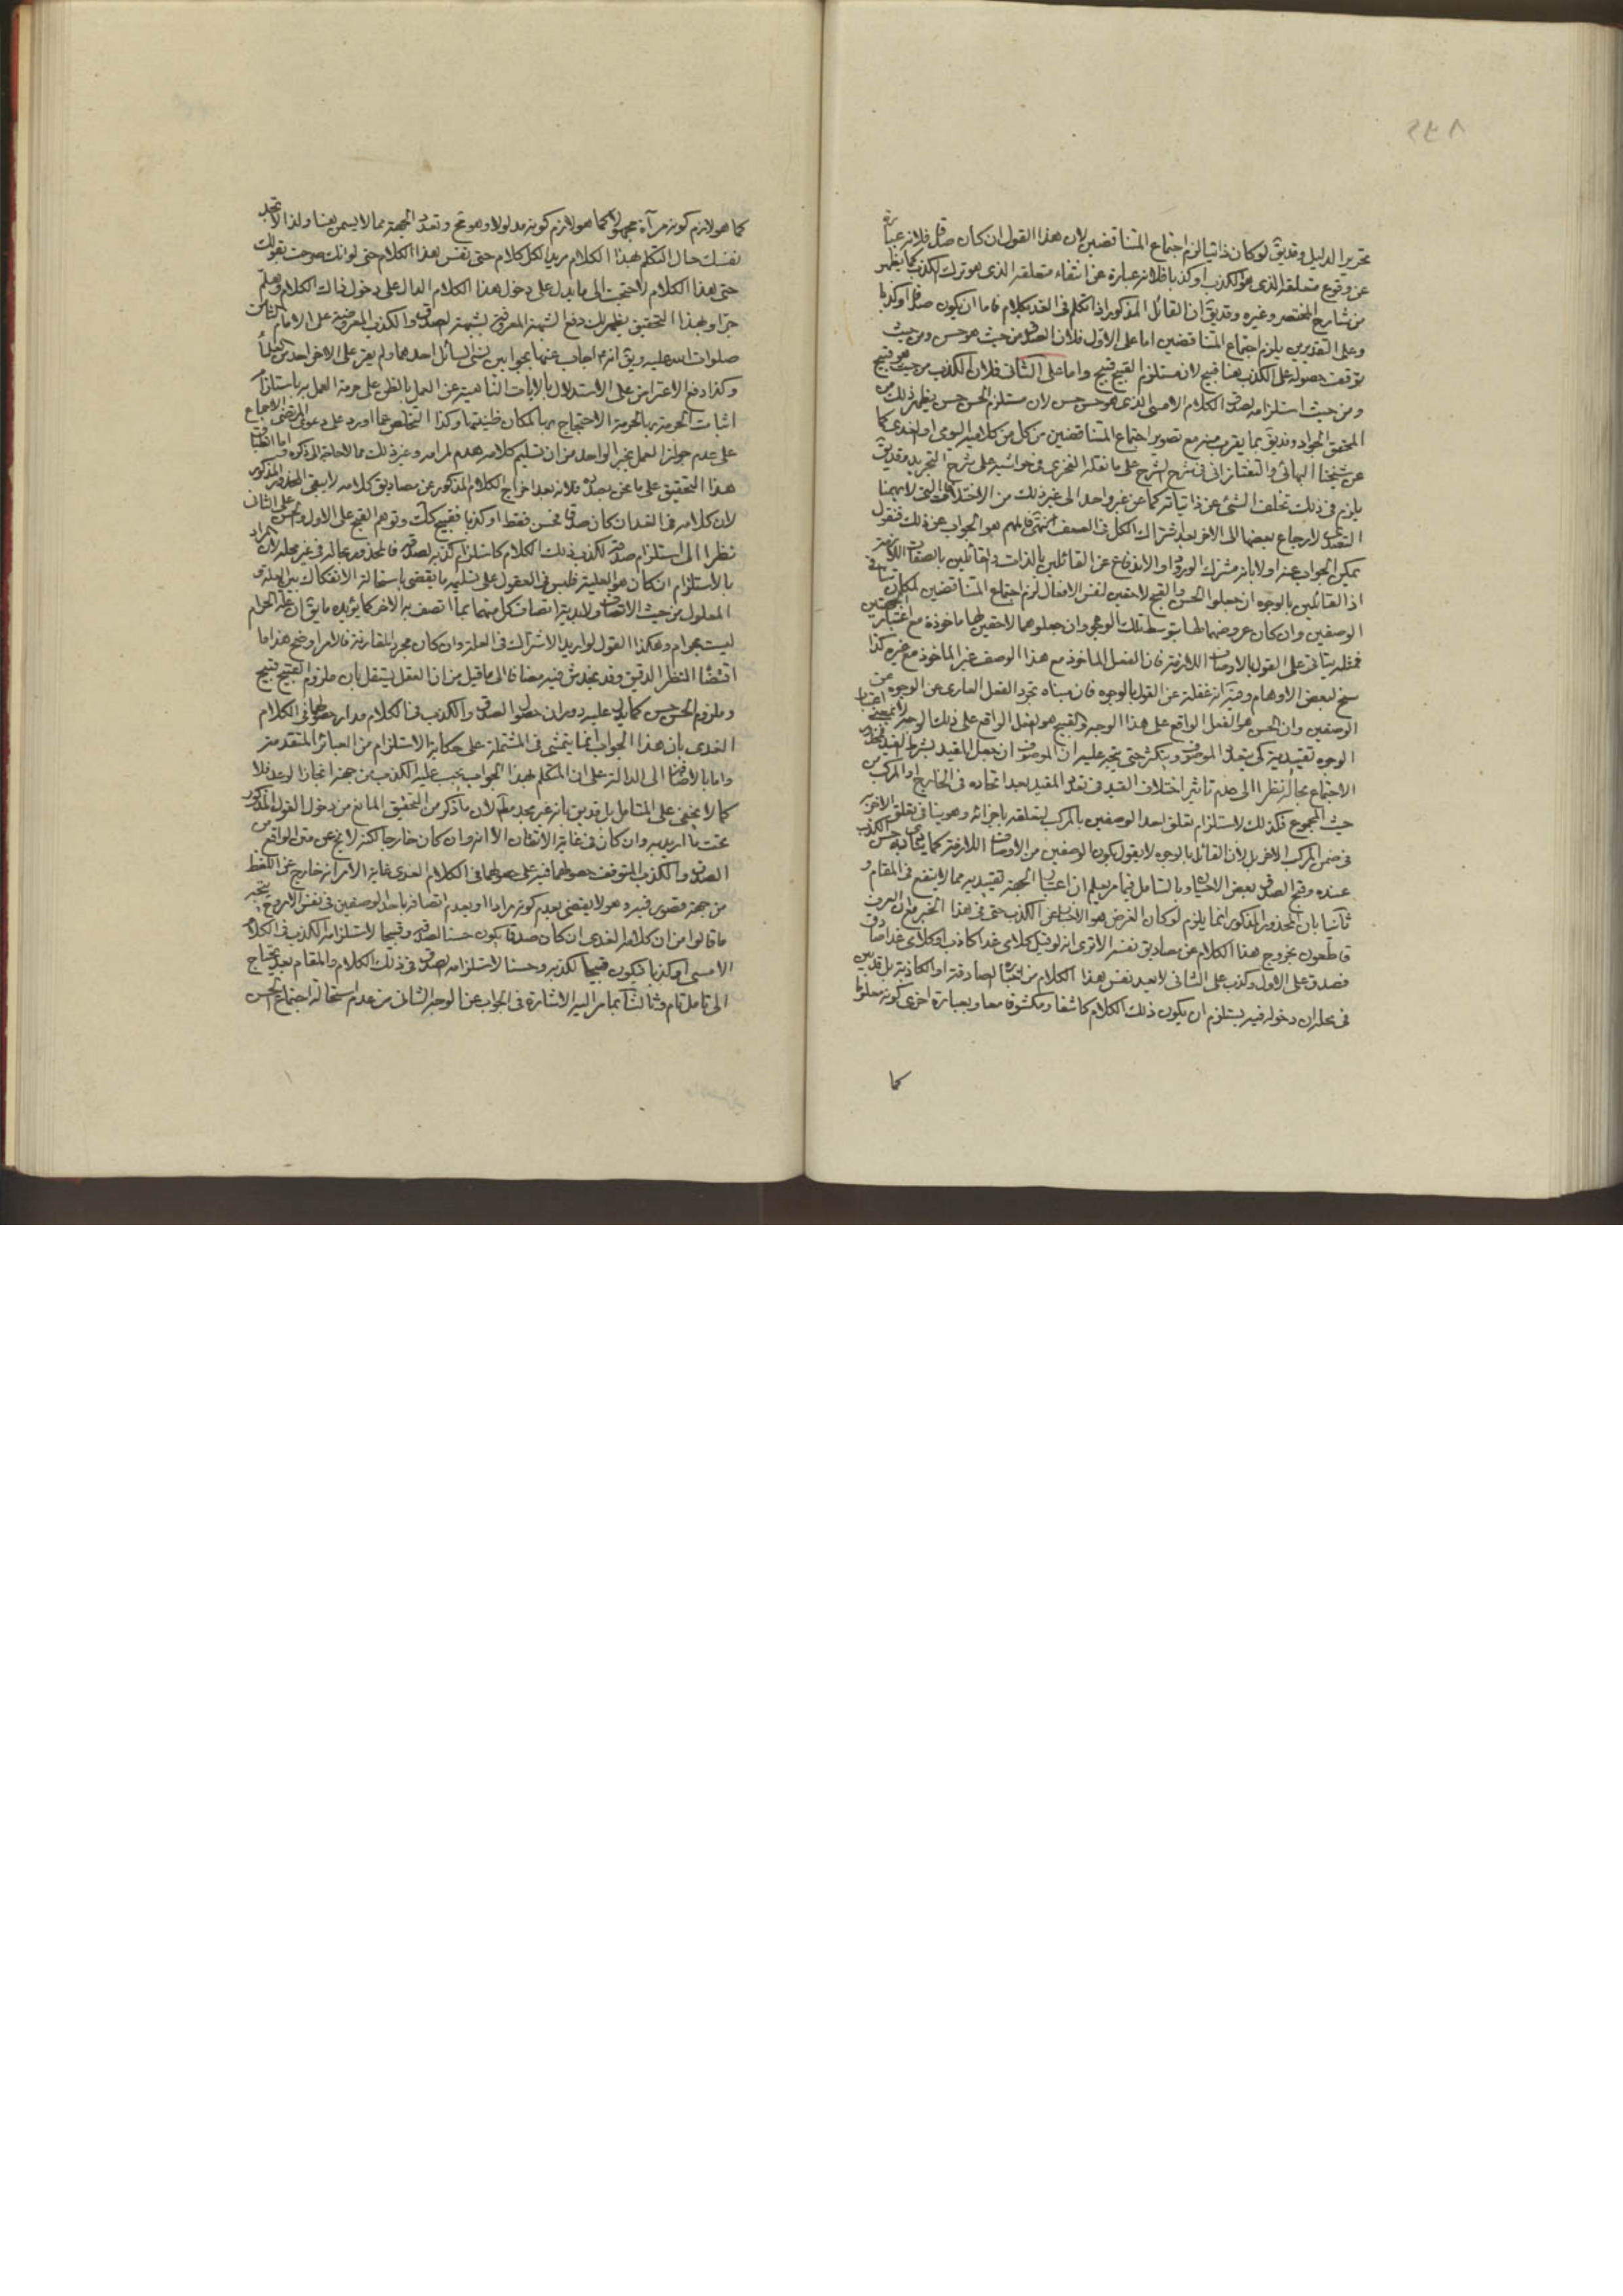 تحرير الدليل وقد يق لو كان ذاتيا لزم اجتماع المتناقضين لان هذا القول ان كان صدقا فلانه عبارة
عن وقوع متعلقه الذي هو الكذب او كذبا فلانه عبارة عن انتفاء متعلقه الذي هو ترك الكذب كما يظهر
من شارح المختصر وغيره وقد يق ان القائل المذكور اذا تكلم في الغد بكلام فاما ان يكون صدقا او كذبا
وعلى التقديرين يلزم اجتماع المتناقضين اما على الاول فلان الصدق من حيث هو حسن ومن حيث
توقف حصوله على الكذب بغا قبيح لان مستلزم القبيح قبيح واما على الثاني فلان الكذب من حيث هو قبيح
ومن حيث استلزامه لصدق الكلام الامسي الذي هو حسن حسن لان مستلزم الحسن حسن يظهر ذلك من
المحقق الجواد وقد يق بما يقرب منه مع تصوير اجتماع المتناقضين من كل من كلاميه اليومي او الغدي كما
عن شيخنا البهائي والتفتازاني في شرح الشرح على ما نقله الفخري في حواشيه على شرح التجريد وقد يق
يلزم في ذلك تخلف الشئ عن ذاتياته كما عن غير واحد الى غير ذلك من الاختلافات التي لا يهمنا
التعدد لارجاع بعضها الى الاخر بعد اشتراك الكل في الضعف انتهى فالمهم هو الجواب عن ذلك فنقول
يمكن الجواب عنه اولا بانه مشترك الورود او الاندفاع عن القائلين بالذات والقائلين بالصفات اللازمة
اذ القائلين بالوجوه ان جعلوا الحسن والقبح لاحقين لنفس الافعال لزم اجتماع المتناقضين لمكان تنافي
الوصفين وان كان عروضهما لها بتوسط تلك الوجوه وان جعلوهما لاحقين لها ماخوذة مع اعتبار الجهتين
فمثله يتاتى على القول بالاوصاف اللازمة فان الفعل الماخوذ مع هذا الوصف غير الماخوذ مع غيره كذا
سنح لبعض الاوهام وفيه انه غفلة عن القول بالوجوه فان مبناه تجرد الفعل العاري عن الوجوه عن
الوصفين وان الحسن هو الفعل الواقع على هذا الوجه والقبيح هو الفعل الواقع على ذلك الوجه لا بمعنى اعتبار
الوجوه تقييدية كي يتعدد الموصوف ويتكثر حتى يتجه عليه ان الموصوف ان جعل المقيد بشرط القيد فمحذور
الاجتماع بحاله نظرا الى عدم تاثير اختلاف القيد في تعدد المقيد بعد اتحاده في الخارج او المركب من
حيث المجموع فكذلك لاستلزام تعلق احد الوصفين بالمركب لتعلقه باجزائه وهو ينافي تعلق الاخر به
في ضمن المركب الاخر بل لان القائل بالوجوه لا يقول بكون الوصفين من الاوصاف اللازمة كما ينادي به حسن الكذب
عنده وقبح الصدق بعض الاحيان وبالتامل فيما مر يعلم ان اعتبار الجهة تقييدية مما لا ينفع في المقام و
ثانيا بان المحذور المذكور انما يلزم لو كان الغرض هو الاخبار عن الكذب حتى في هذا الخبر مع ان العرف
قاطعون بخروج هذا الكلام عن مصاديق نفسه الا ترى انه لو قيل كلامي غدا كاذب او كلامي غدا صادق
فصدق على الاول وكذب على الثاني لا يعد نفس هذا الكلام من اخباره الصادقة او الكاذبة بل قد يبين
في محله ان دخوله فيه يستلزم ان يكون ذلك الكلام كاشفا ومكشوفا معا وبعبارة اخرى كونه معلوما
كما
كما هو لازم كونه مرآة مجهولا كما هو لازم كونه مدلولا وهو مح وتعدد الجهة مما لا يسمن بغنا ولذا لا تجد
نفسك حال التكلم بهذا الكلام مريدا لكل كلام حتى نفس هذا الكلام حتى لو انك صرحت بقولك
حتى هذا الكلام لاحتجت الى ما يدل على دخول هذا الكلام الدال على دخول ذاك الكلام وهلم
جرا وبهذا التحقيق يظهر لك دفع الشبهة المعروفة بشبهة الصدق والكذب المعروضة على الامام الثامن
صلوات الله عليه ويق انه م اجاب عنها بجوابين نسي السائل احدهما ولم يعثر على الاخر احد من العلماء
وكذا دفع الاعتراض على الاستدلال بالايات الناهية عن العمل بالظن على حرمة العمل به باستلزام
اثبات الحرمة بها لحرمة الاحتجاج بها لمكان ظنيتها وكذا التخلص عما اورد على دعوى المرتضى الاجماع
على عدم جواز العمل بخبر الواحد من ان تسليم كلامه هدم لمرامه وغير ذلك مما لا حاجة الى ذكره واما انطباق
هذا التحقيق على ما نحن بصدده فلانه بعد اخراج الكلام المذكور عن مصاديق كلامه لا يبقى المحذور المذكور
لان كلامه في الغد ان كان صدقا فحسن فقط او كذبا فقبيح كك وتوهم القبح على الاول والحسن على الثاني
نظرا الى استلزام صدقه لكذب ذلك الكلام كاستلزام كذبه لصدقه فالمحذور بحاله في غير محله لان المراد
بالاستلزام ان كان هو العلية فليس في العقول على تسليمه ما يقضي باستحالة الانفكاك بين العلة و
المعلول من حيث الاتصاف ولابدية اتصاف كل منهما بما اتصف به الاخر كما يؤيده ما يق ان علة الحرام
ليست بحرام وهكذا القول لو اريد الاشتراك في العلة وان كان مجرد المقارنة فالامر اوضح هذا ما
اقتضاه النظر الدقيق وقد يخدش فيه مضافا الى ما قيل من ان العقل يستقل بان ملزوم القبيح قبيح
وملزوم الحسن حسن كما يدل عليه دوران حصول الصدق والكذب في الكلام مدار حصولهما في الكلام
الغدي بان هذا الجواب انما يتمشى في المشتملة على حكاية الاستلزام من العبائر المتقدمة
واما بالاضافة الى الدالة على ان المتكلم بهذا الجواب يجب عليه الكذب من جهة انجاز الوعد فلا
كما لا يخفى على المتامل بل قد يق بانه غير مجد مطلقا لان ما ذكر من التحقيق المانع من دخول القول المذكور
تحت ما اريد به وان كان في غاية الاتقان الا انه وان كان خارجا لكنه لا يخ عن متن الواقع من
الصدق والكذب المتوقف حصولهما فيه على حصولهما في الكلام الغدي غاية الامر انه خارج عن اللفظ
من جهة قصور فيه وهو لا يقضي بعدم كونه مرادا او بعدم اتصافه باحد الوصفين في نفس الامر وح يتجه
ما قالوا من ان كلامه الغدي ان كان صدقا يكون حسنا لصدقه وقبيحا لاستلزامه الكذب في الكلام
الامسي او كذبا فيكون قبيحا لكذبه وحسنا لاستلزامه الصدق في ذلك الكلام والمقام بعد يحتاج
الى تامل تام وثالثا بما مر اليه الاشارة في الجواب عن الوجه الثاني من عدم استحالة اجتماع الحسن